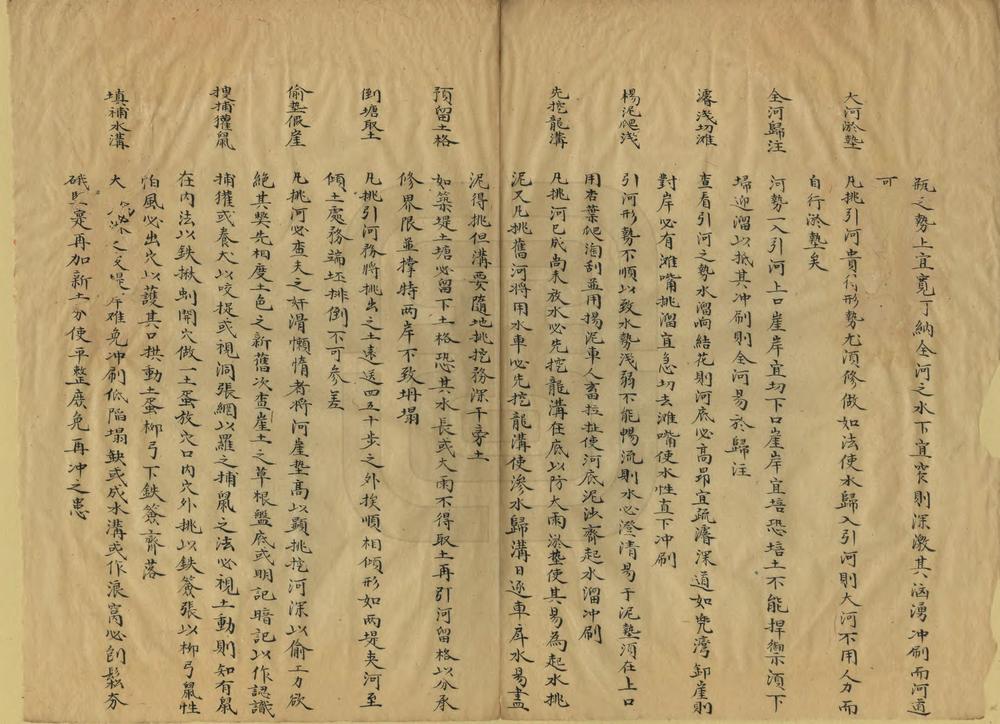 瓶之勢上宜寬丁納全河之水下宜窄則深激其汹湧冲刷而河道
可
大河淤墊
凡挑引河貴得形勢尤須修做如法使水歸入引河則大河不用人力而
自行淤墊矣
全河歸注
河勢一入引河上口崖岸宜切下口崖岸宜培恐培土不能捍禦示須下
埽迎溜以抵其冲刷則全河易於歸注
濬淺切灘
查看引河之勢水溜响結花則河底必高昂宜疏濬深道如兜灣卸崖則
對岸必有灘嘴挑溜宜急切去灘嘴使水性直下冲刷
楊泥爬淺
引河形勢不順以致水勢淺弱不能暢流則水必澄清易于泥墊須在上口
用杏葉爬淘刮並用揚泥車人畜拉扯使河底泥沙齊起水溜冲刷
先挖龍溝
凡挑河已成尚未放水必先挖龍溝在底以防大雨淤墊使其易為起水挑
泥又凡挑舊河將用水車必先挖龍溝使滲水歸溝日逐車戽水易盡
泥得挑但溝要隨地挑挖務深于旁土
預留土格
如築堤土塘必留下土格恐其水長或大雨不得取土再引河留格以分承
修界限並撑持两岸不致坍塌
倒塘取土
凡挑引河務將挑出之土遠送四五十步之外挨順相傾形如两堤夹河至
傾土處務端坯排倒不可参差
偷墊假崖
凡挑河必查夫之奸滑懶惰者將河崖墊高以顯挑挖河深以偷工力欲
絕其獘先相度土色之新舊次查崖土之草根盤底或明記暗記以作認識
搜捕獾鼠
捕獾或養犬以咬捉或視洞張網以羅之捕鼠之法必視土動則知有鼠
在内法以鉄揪剷開穴做一土蛋放穴口内穴外挑以鉄簽張以柳弓鼠性
怕風必出穴以護其口拱動土蛋柳弓下鉄簽齊落
填補水溝
大 之 堤岸难免冲刷低陷塌缺或成水溝或作浪窩必刨鬆夯
硪堅寔再加新土分使平整庶免再冲之患